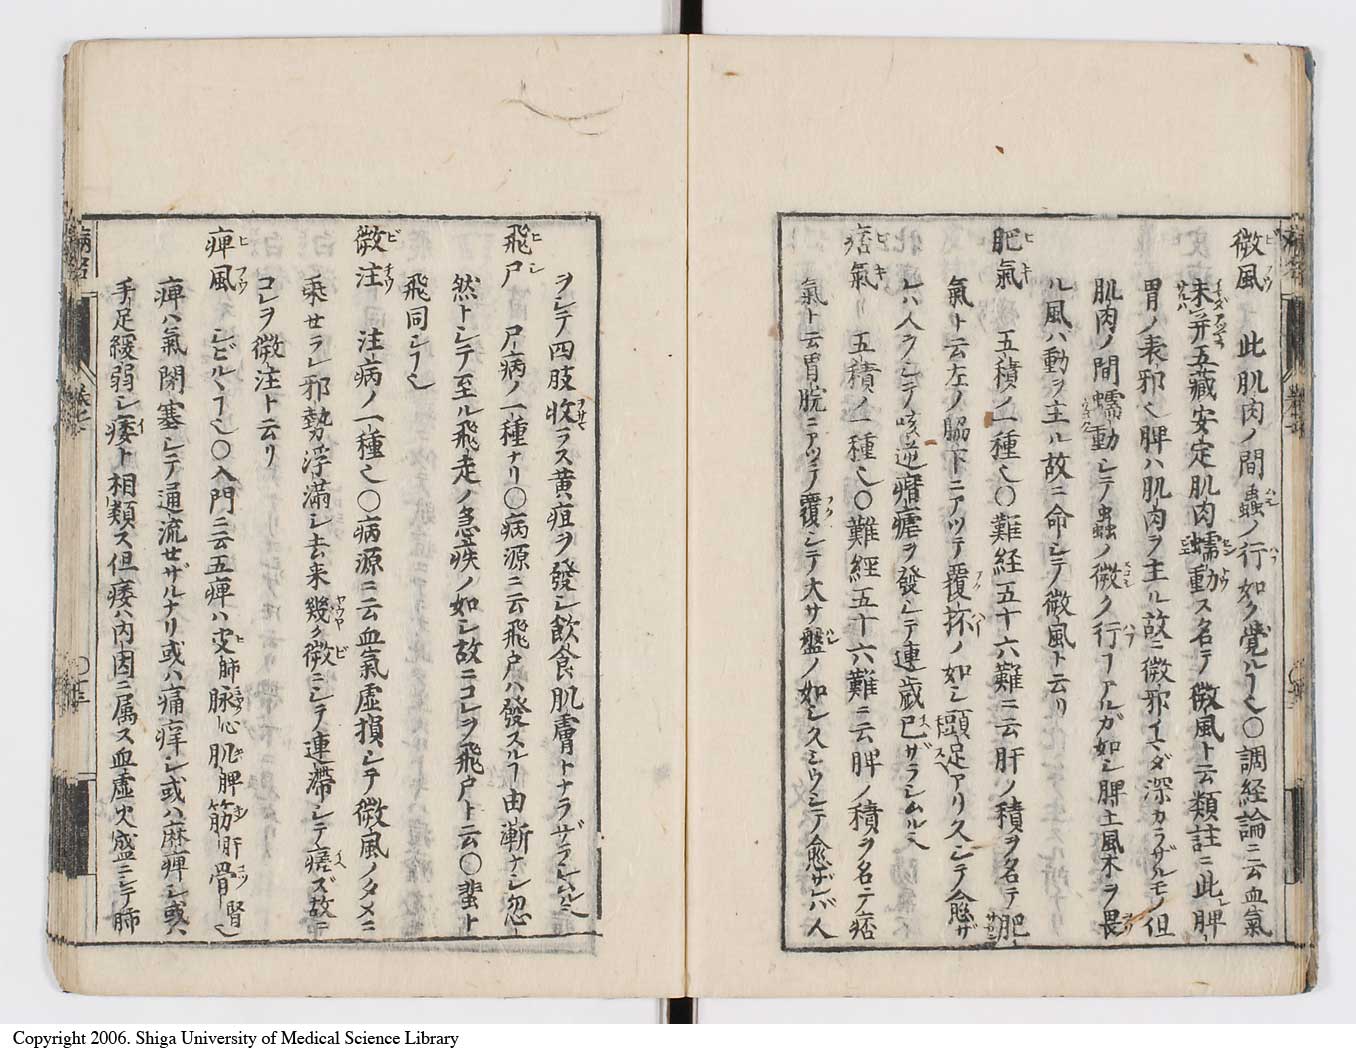 微風 此肌肉ノ間蟲ノ行如ク覚ルヿ也〇調経論ニ云血氣
未并五藏安定肌肉蠕動ス名テ微風ト云類註ニ此脾
胃ノ表邪也脾ハ肌肉ヲ主ル故ニ微邪イマダ深カラザルモノ但
肌肉ノ間蠕動シテ蟲ノ微ク行ヿアルガ如シ脾土風木ヲ畏
ル風ハ動ヲ主ル故ニ命シテ微風ト云リ
肥氣 五積ノ一種也〇難経五十六難ニ云肝ノ積ヲ名テ肥
氣ト云左ノ脇下ニアツテ覆杯ノ如シ頭足アリ久シテ愈ザ
レハ人ヲシテ咳逆瘧ヲ發シテ連歳已ザラシムル也
痞氣 五積ノ一種也〇難経五十六難ニ云脾ノ積ヲ名テ痞
氣ト云胃脘ニアツテ覆シテ大サ盤ノ如シ久シウシテ愈ザレバ人
ヲシテ四肢收ラス黄疸ヲ發シ飲食肌膚トナラザラシムル也
飛尸 尸病ノ一種ナリ〇病源ニ云飛尸ハ發スルヿ由漸ナシ忽
然トシテ至ル飛走ノ急疾ノ如シ故ニコレヲ飛尸ト云〇蜚ト
飛同シヿ也
微注 注病ノ一種也〇病源ニ云血氣虚損シテ微風ノタメニ
乘セラレ邪勢浮滿シ去来幾ク微ニシテ連滯シテ瘥ズ故ニ
コレヲ微注ト云リ
痺風 シビルヽヿ也〇入門ニ云五痺ハ皮肺脉心肌脾筋肝骨腎也
痺ハ氣閉塞シテ通流セザルナリ或ハ痛痒シ或ハ麻痺シ或ハ
手足緩弱シ痿ト相類ス但痿ハ内因ニ属ス血虚火盛ニシテ肺
病名
巻七
〇十三
Copyright 2006. Shiga University of Medical Science Library